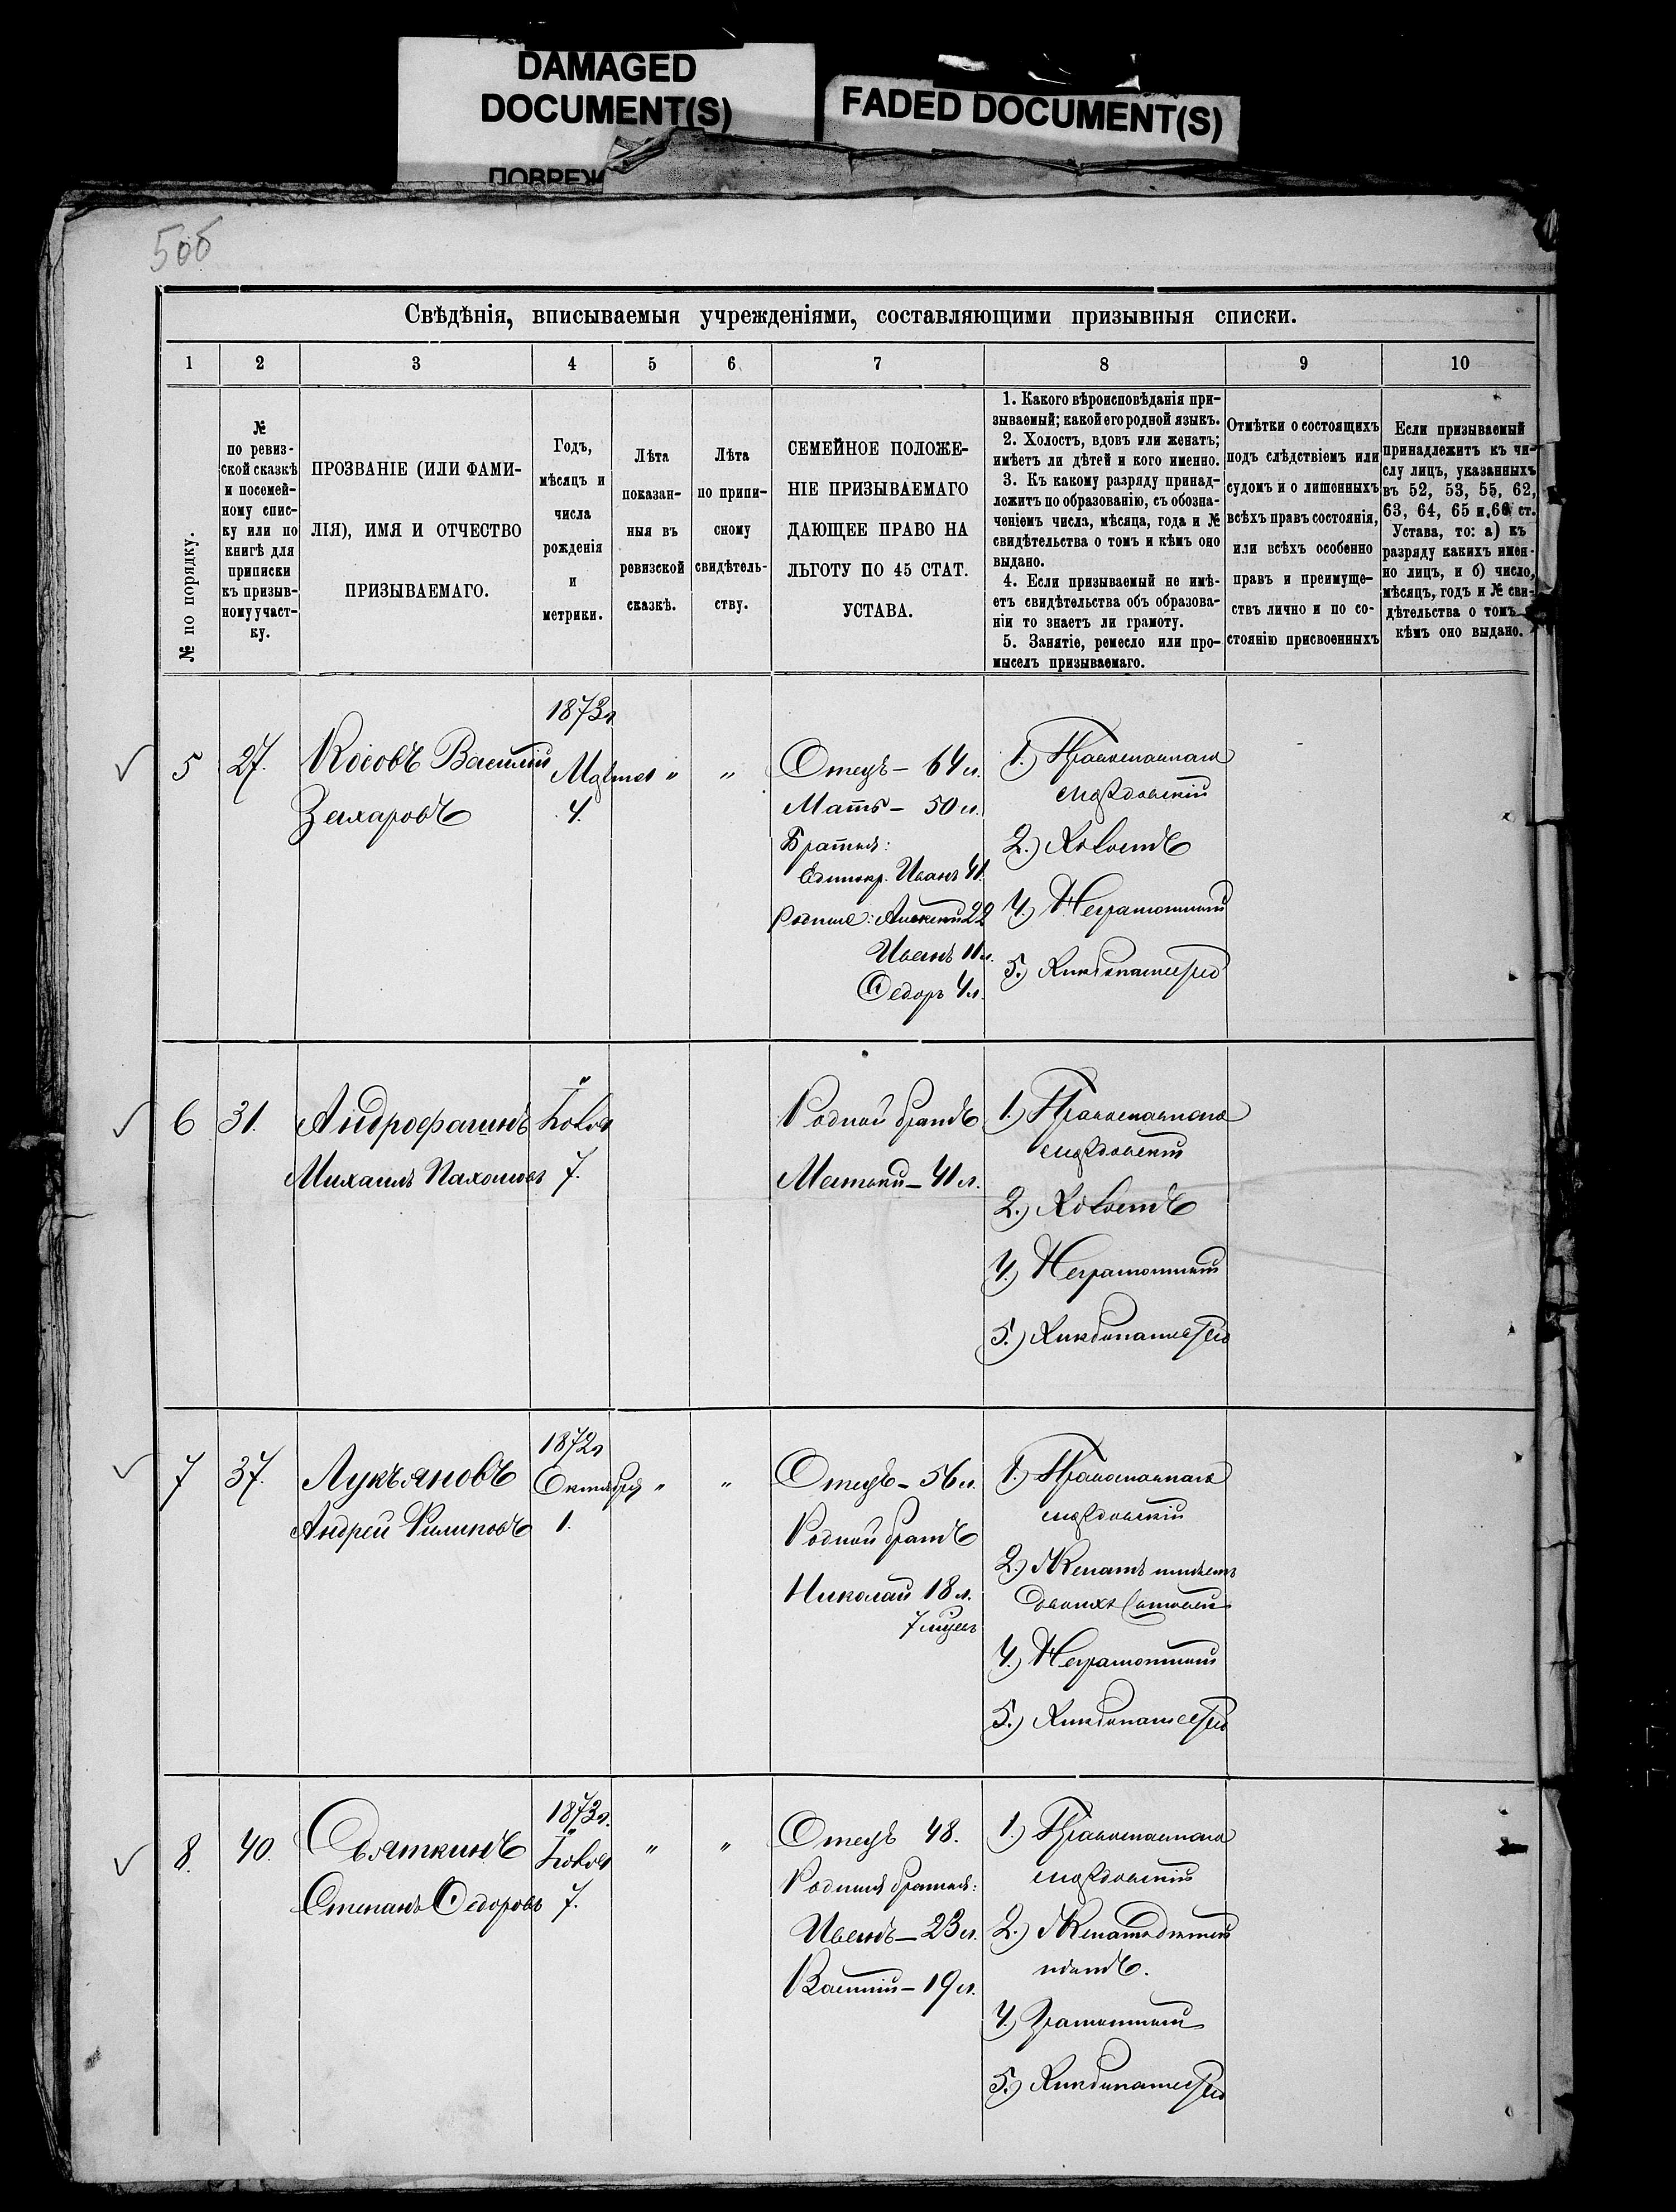 DAMAGED
DOCUMENT(S)
FADED DOCUMENT(S)
ПОВРЕЖ
5об
Свѣдѣнія, вписываемыя учрежденіями, составляющими призывныя списки.
1 2 3 4 5 6 7 8 9 10
№ по порядку.
№
по ревиз-
ской сказкѣ
и посемей-
ному спис-
ку или по
книгѣ для
приписки
къ призыв-
ному участ-
ку.
ПРОЗВАНІЕ (ИЛИ ФАМИ-
ЛІЯ), ИМЯ И ОТЧЕСТВО
ПРИЗЫВАЕМАГО.
Годъ,
мѣсяцъ и
числа
рожденія
и
метрики.
Лѣта
показан-
ныя въ
ревизской
сказкѣ.
Лѣта
по припи-
сному
свидѣтель-
ству.
СЕМЕЙНОЕ ПОЛОЖЕ-
НІЕ ПРИЗЫВАЕМАГО
ДАЮЩЕЕ ПРАВО НА
ЛЬГОТУ ПО 45 СТАТ.
УСТАВА.
1. Какого вѣроисповѣданія при-
зываемый; какой его родной языкъ.
2. Холостъ, вдовъ или женатъ;
имѣетъ ли дѣтей и кого именно.
3. Къ какому разряду принад-
лежитъ по образованію, съ обозна-
ченіемъ числа, мѣсяца, года и №
свидѣтельства о томъ и кѣмъ оно
выдано.
4. Если призываемый не имѣ-
етъ свидѣтельства объ образова-
ніи то знаетъ ли грамоту.
5. Занятіе, ремесло или про-
мыселъ призываемаго.
Отмѣтки о состоящихъ
подъ слѣдствіемъ или
судомъ и о лишенныхъ
всѣхъ правъ состоянія,
или всѣхъ особенно
правъ и преимуще-
ствъ лично и по со-
стоянію присвоенныхъ
Если призываемый
принадлежитъ къ чи-
слу лицъ, указанныхъ
въ 52, 53, 55, 62,
63, 64, 65 и 66 ст.
Устава, то: а) къ
разряду какихъ имен-
но лицъ, и б) число,
мѣсяцъ, годъ и № сви-
дѣтельства о томъ и
кѣмъ оно выдано.
5 27. Косовъ Василій
Захаровъ
1873г
Марта
4.
" "
Отецъ – 64 л.
Мать – 50 л.
Братья:
Единокр. Иванъ 41.
Родные: Алексѣй 22
Иванъ 11 л.
Ѳедоръ 4 л.
1.) Православнаго
мордовскій
2.) Холостъ
4.) Неграмотный
5.) Хлѣбопашество
6 31.
Михаилъ Пахомовъ
"
Ноябр
7.
Родной братъ
41 л.
1.) Православнаго
мордовскій
2.) Холостъ
4.) Неграмотный
5.) Хлѣбопашество
7 37. Лукьяновъ
Андрей Филиповъ
1872г
Октября
1.
" "
Отецъ – 56 л.
Родной братъ
Николай 18 л.
7 мцев
1.) Православнаго
мордовскій
2.) Женатъ имѣетъ
двоихъ сыновей
4.) Неграмотный
5.) Хлѣбопашество
8. 40. Святкинъ
Степанъ Ѳедоровъ
1873г.
"
Ноябр
7.
" "
Отецъ 48.
Родныя братья:
Иванъ – 23 л.
Василій – 19 л.
1.) Православнаго
мордовскій
2.) Женатъ дѣтей
нѣтъ.
4.) Грамотный
5.) Хлѣбопашество